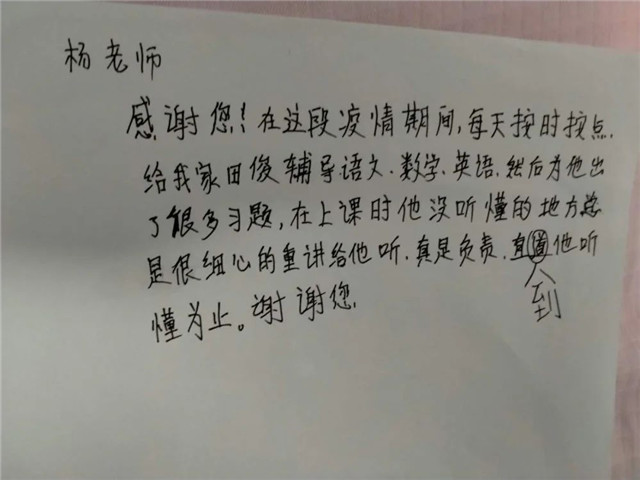 杨老师
感谢您!在这段疫情期间,每天按时按点
给我家田俊辅导语文.数字.英语.然后为他出
了很多习题,在上课时他没听懂的地方总
是很细心的重讲给他听.真是负责.直道他听
到
懂为止。谢谢您.